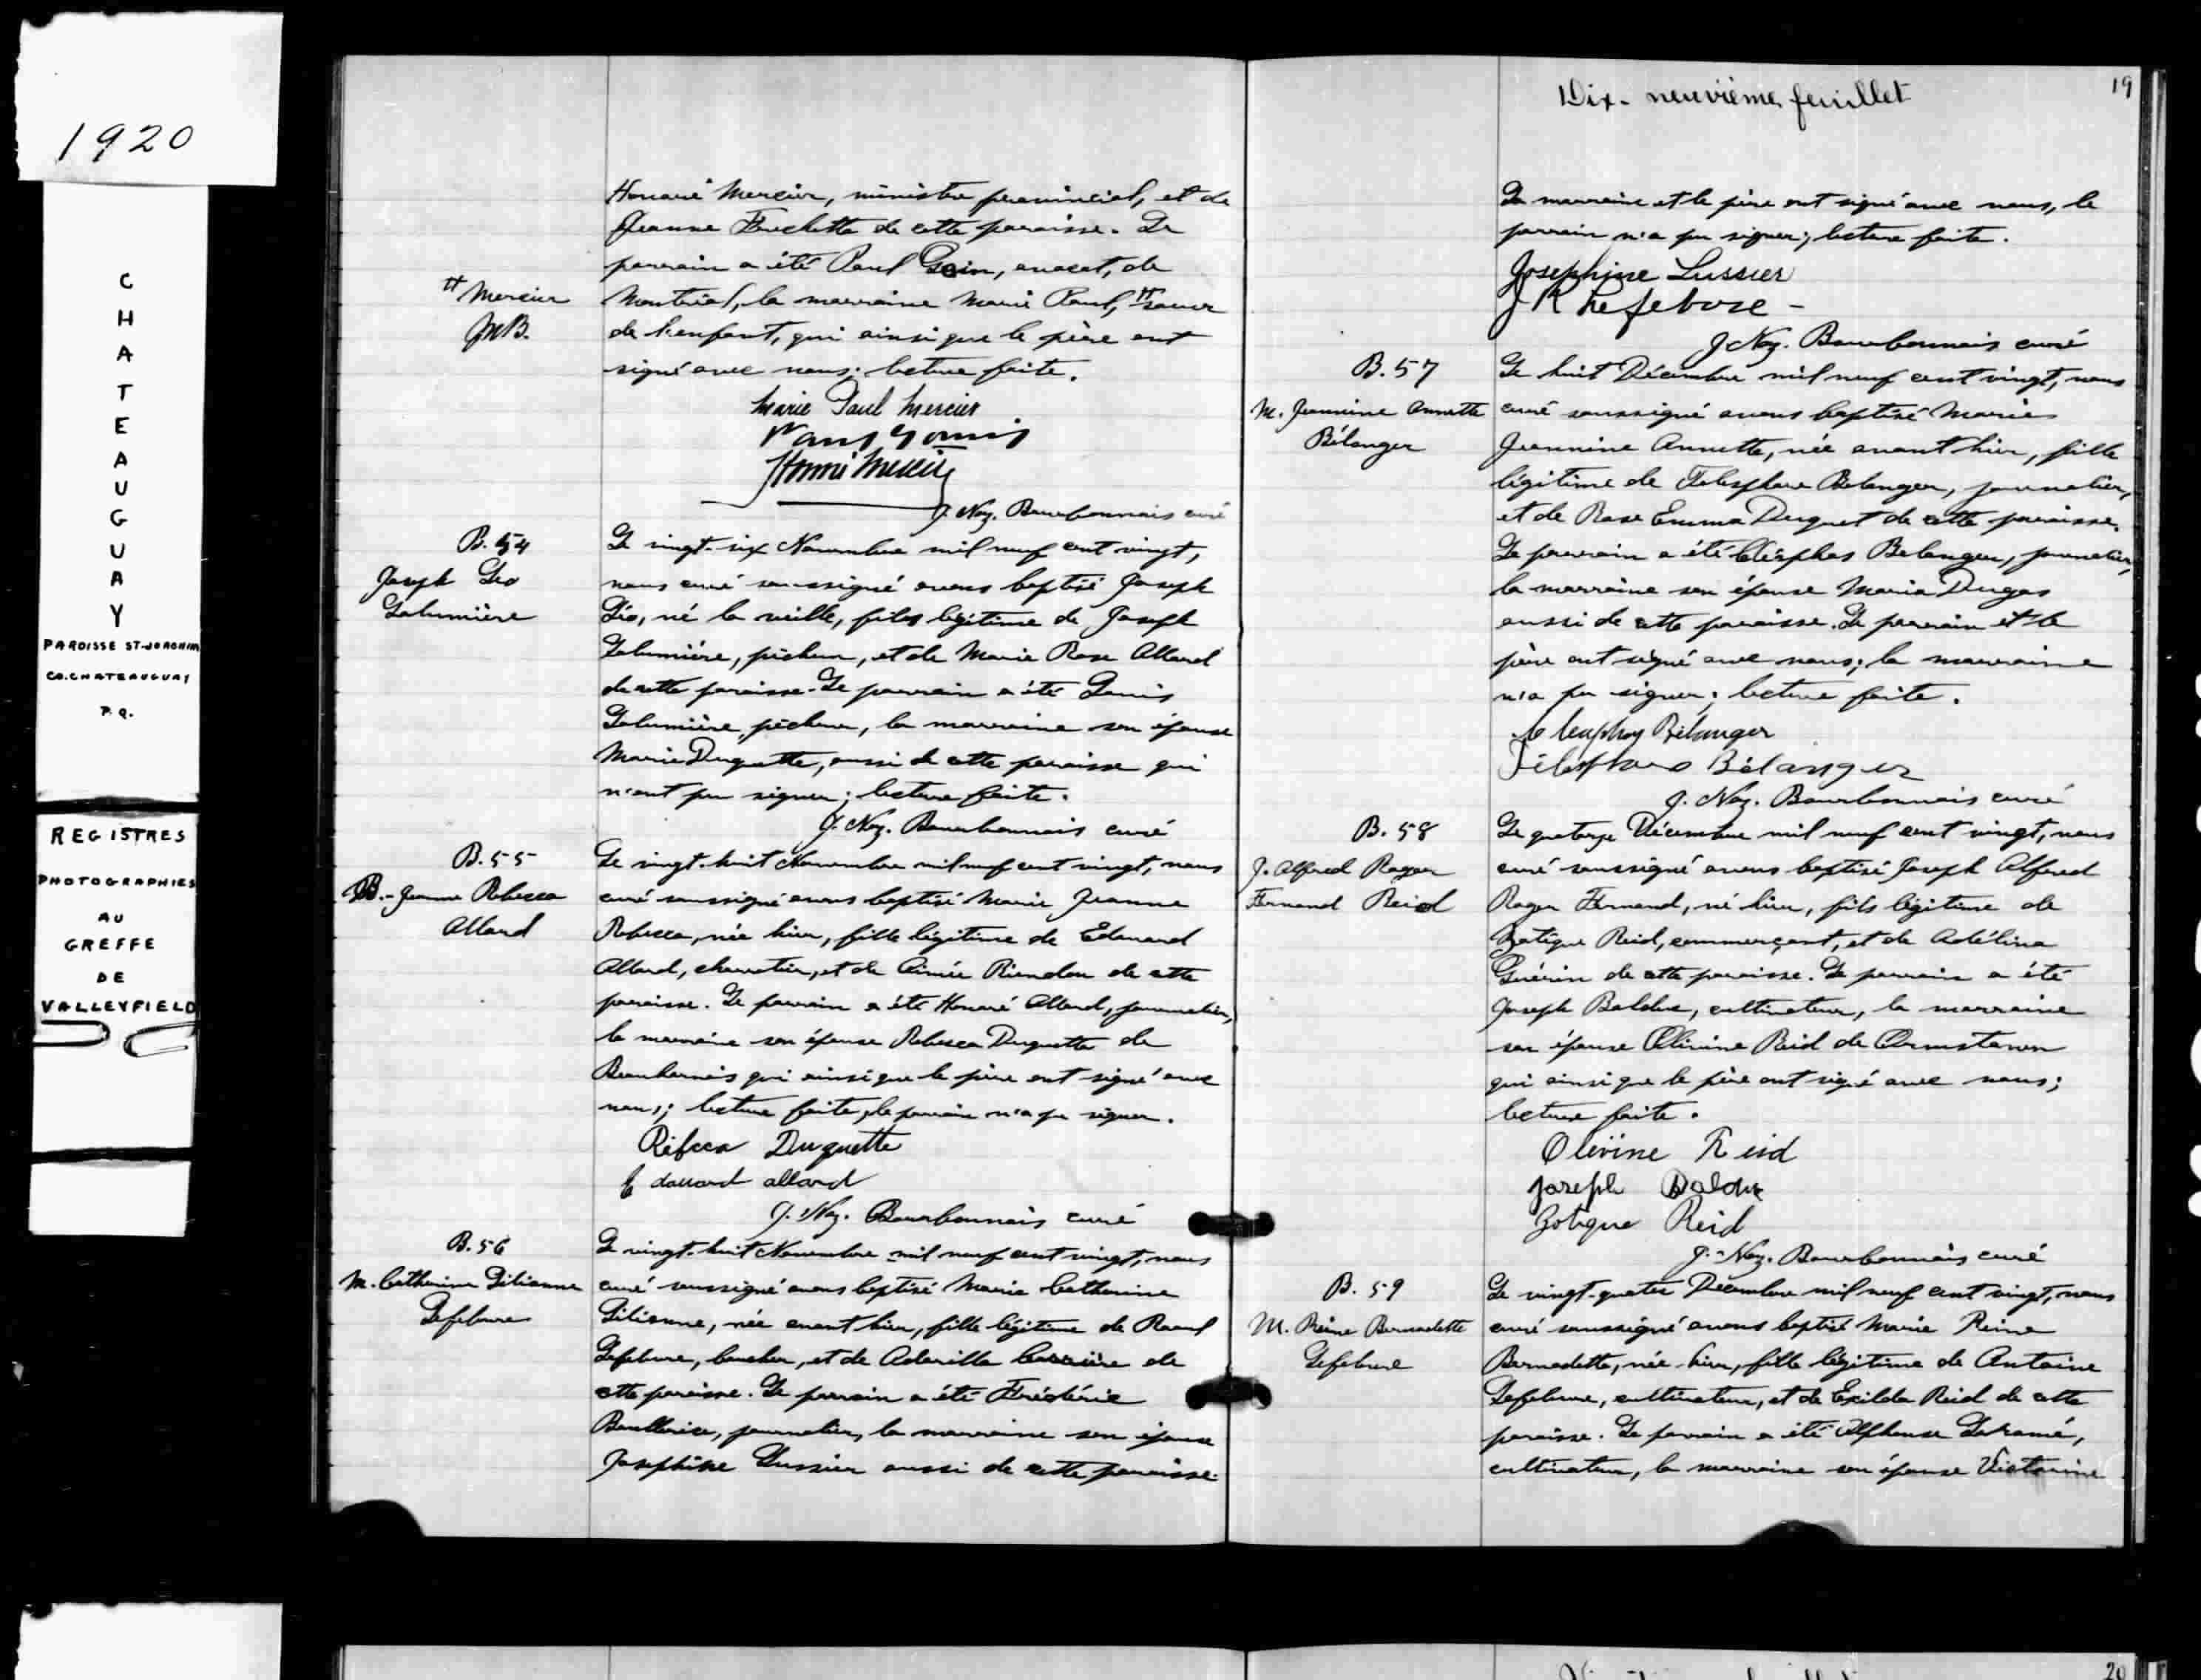 1920
CHATEAUGUAY
PAROISSE ST-JOACHIM
CO. CHATEAUGUAY
P.Q.
REGISTRES
PHOTOGRAPHIES
AU
GREFFE
DE
VALLEYFIELD
Honoré Mercier, ministre provincial, et de
Jeanne Frechette de cette paroisse. Le
parrain a été Paul Gouin, avocat, de
# Mercier
JNB.
Montréal, la marraine Marie Paul, # soeur
de l'enfant, qui ainsi que le père ont
signé avec nous; lecture faite.
Marie Paul Mercier
Paul Gouin
Honoré Mercier
J. Naz. Bourbonnais curé
B. 54
Joseph Léo
Lalumière
Le vingt-six Novembre mil neuf cent vingt,
nous curé soussigné avons baptisé Joseph
Léo, né la veille, fils légitime de Joseph
Lalumière, pêcheur, et de Marie Rose Allard
de cette paroisse. Le parrain a été Denis
Lalumière, pêcheur, la marraine son épouse
Marie Duquette, aussi de cette paroisse qui
n'ont pu signer; lecture faite.
J. Naz. Bourbonnais curé
B. 55
Jeanne Rebecca
Allard
Le vingt-huit Novembre mil neuf cent vingt, nous
curé soussigné avons baptisé Marie Jeanne
Rebecca, née hier, fille légitime de Edouard
Allard, charretier, et de Aimée Riendeau de cette
paroisse. Le parrain a été Honoré Allard, journalier,
la marraine son épouse Rebecca Duquette de
Beauharnois qui ainsi que le père ont signé avec
nous; lecture faite, le parrain n'a pu signer.
Rébecca Duquette
Edouard allard
J. Naz. Bourbonnais curé
B. 56
M. Catherine Liliane
Lefebvre
Le vingt-huit Novembre mil neuf cent vingt, nous
curé soussigné avons baptisé Marie Catherine
Lilianne, née avant hier, fille légitime de Raoul
Lefebvre, boucher, et de de
cette paroisse. Le parrain a été Frédéric
Boutherice, journalier, la marraine son épouse
Josephine Lussier aussi de cette paroisse.
Dix-neuvième feuillet
19
La marraine et le père ont signé avec nous, le
parrain n'a pu signer; lecture faite.
Josephine Lussier
J R Lefebvre -
J Naz. Bourbonnais curé
B. 57
M. Jeannine Annette
Bélanger
Le huit Décembre mil neuf cent vingt, nous
curé soussigné avons baptisé Marie
Jeannine Annette, née avant hier, fille
légitime de Télesphore Belanger, journalier,
et de Rose Emma Duquet de cette paroisse.
Le parrain a été Cléophas Belanger, journalier,
la marraine son épouse Maria Dugas
aussi de cette paroisse. Le parrain et le
père ont signé avec nous; la marraine
n'a pu signer; lecture faite.
Cleophas Bélanger
Télesphore Bélanger
J. Naz. Bourbonnais curé
B. 58
J. Alfred Roger
Fernand Reid
Le quatorze Décembre mil neuf cent vingt, nous
curé soussigné avons baptisé Joseph Alfred
Roger Fernand, né hier, fils légitime de
Zotique Reid, commerçant, et de Adélina
Guérin de cette paroisse. Le parrain a été
Joseph Bolduc, cultivateur, la marraine
son épouse Olivine Reid de Ormstown
qui ainsi que le père ont signé avec nous;
lecture faite.
Olivine Reid
Joseph Bolduc
Zotique Reid
J. Naz. Bourbonnais curé
B. 59
M. Reine Bernadette
Lefebvre
Le vingt-quatre Décembre mil neuf cent vingt, nous
curé soussigné avons baptisé Marie Reine
Bernadette, née hier, fille légitime de Antoine
Lefebvre, cultivateur, et de Exilda Reid de cette
paroisse. Le parrain a été Alphonse
cultivateur, la marraine son épouse Victorine
20